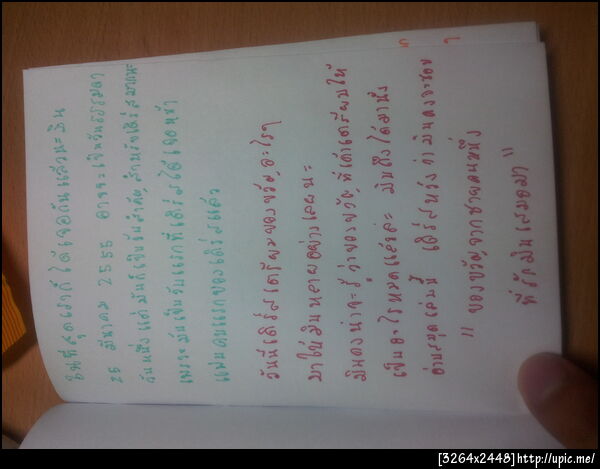 ในที่สุดเราก็ได้เจอกันแล้วนะมิน
25 มีนาคม 2555 อาจจะเป็นวันธรรมดา
วันหนึ่ง แต่มันก็เป็นวันสำคัญ สำหรับเติร์สมากนะ
เพราะมันเป็นวันแรกที่เติร์สได้เจอหน้า
แฟนคนแรกของเติร์สแล้ว
วันนี้เติร์สเตรียมของขวัญอะไรๆ
มาให้มินหลายอย่างเลยนะ
มินคงน่าจะรู้ว่าของขวัญที่เค้าเตรียมให้
เป็นอะไรหมดแล้วล่ะ มินถึงได้มานั่ง
อ่านสมุดเล่มนี้ เติร์สหวังว่ามินคงจะชอบ
" ของขวัญจากชายคนหนึ่ง
ที่รักมินเสมอมา "
[3264x2448]http://upic.me/